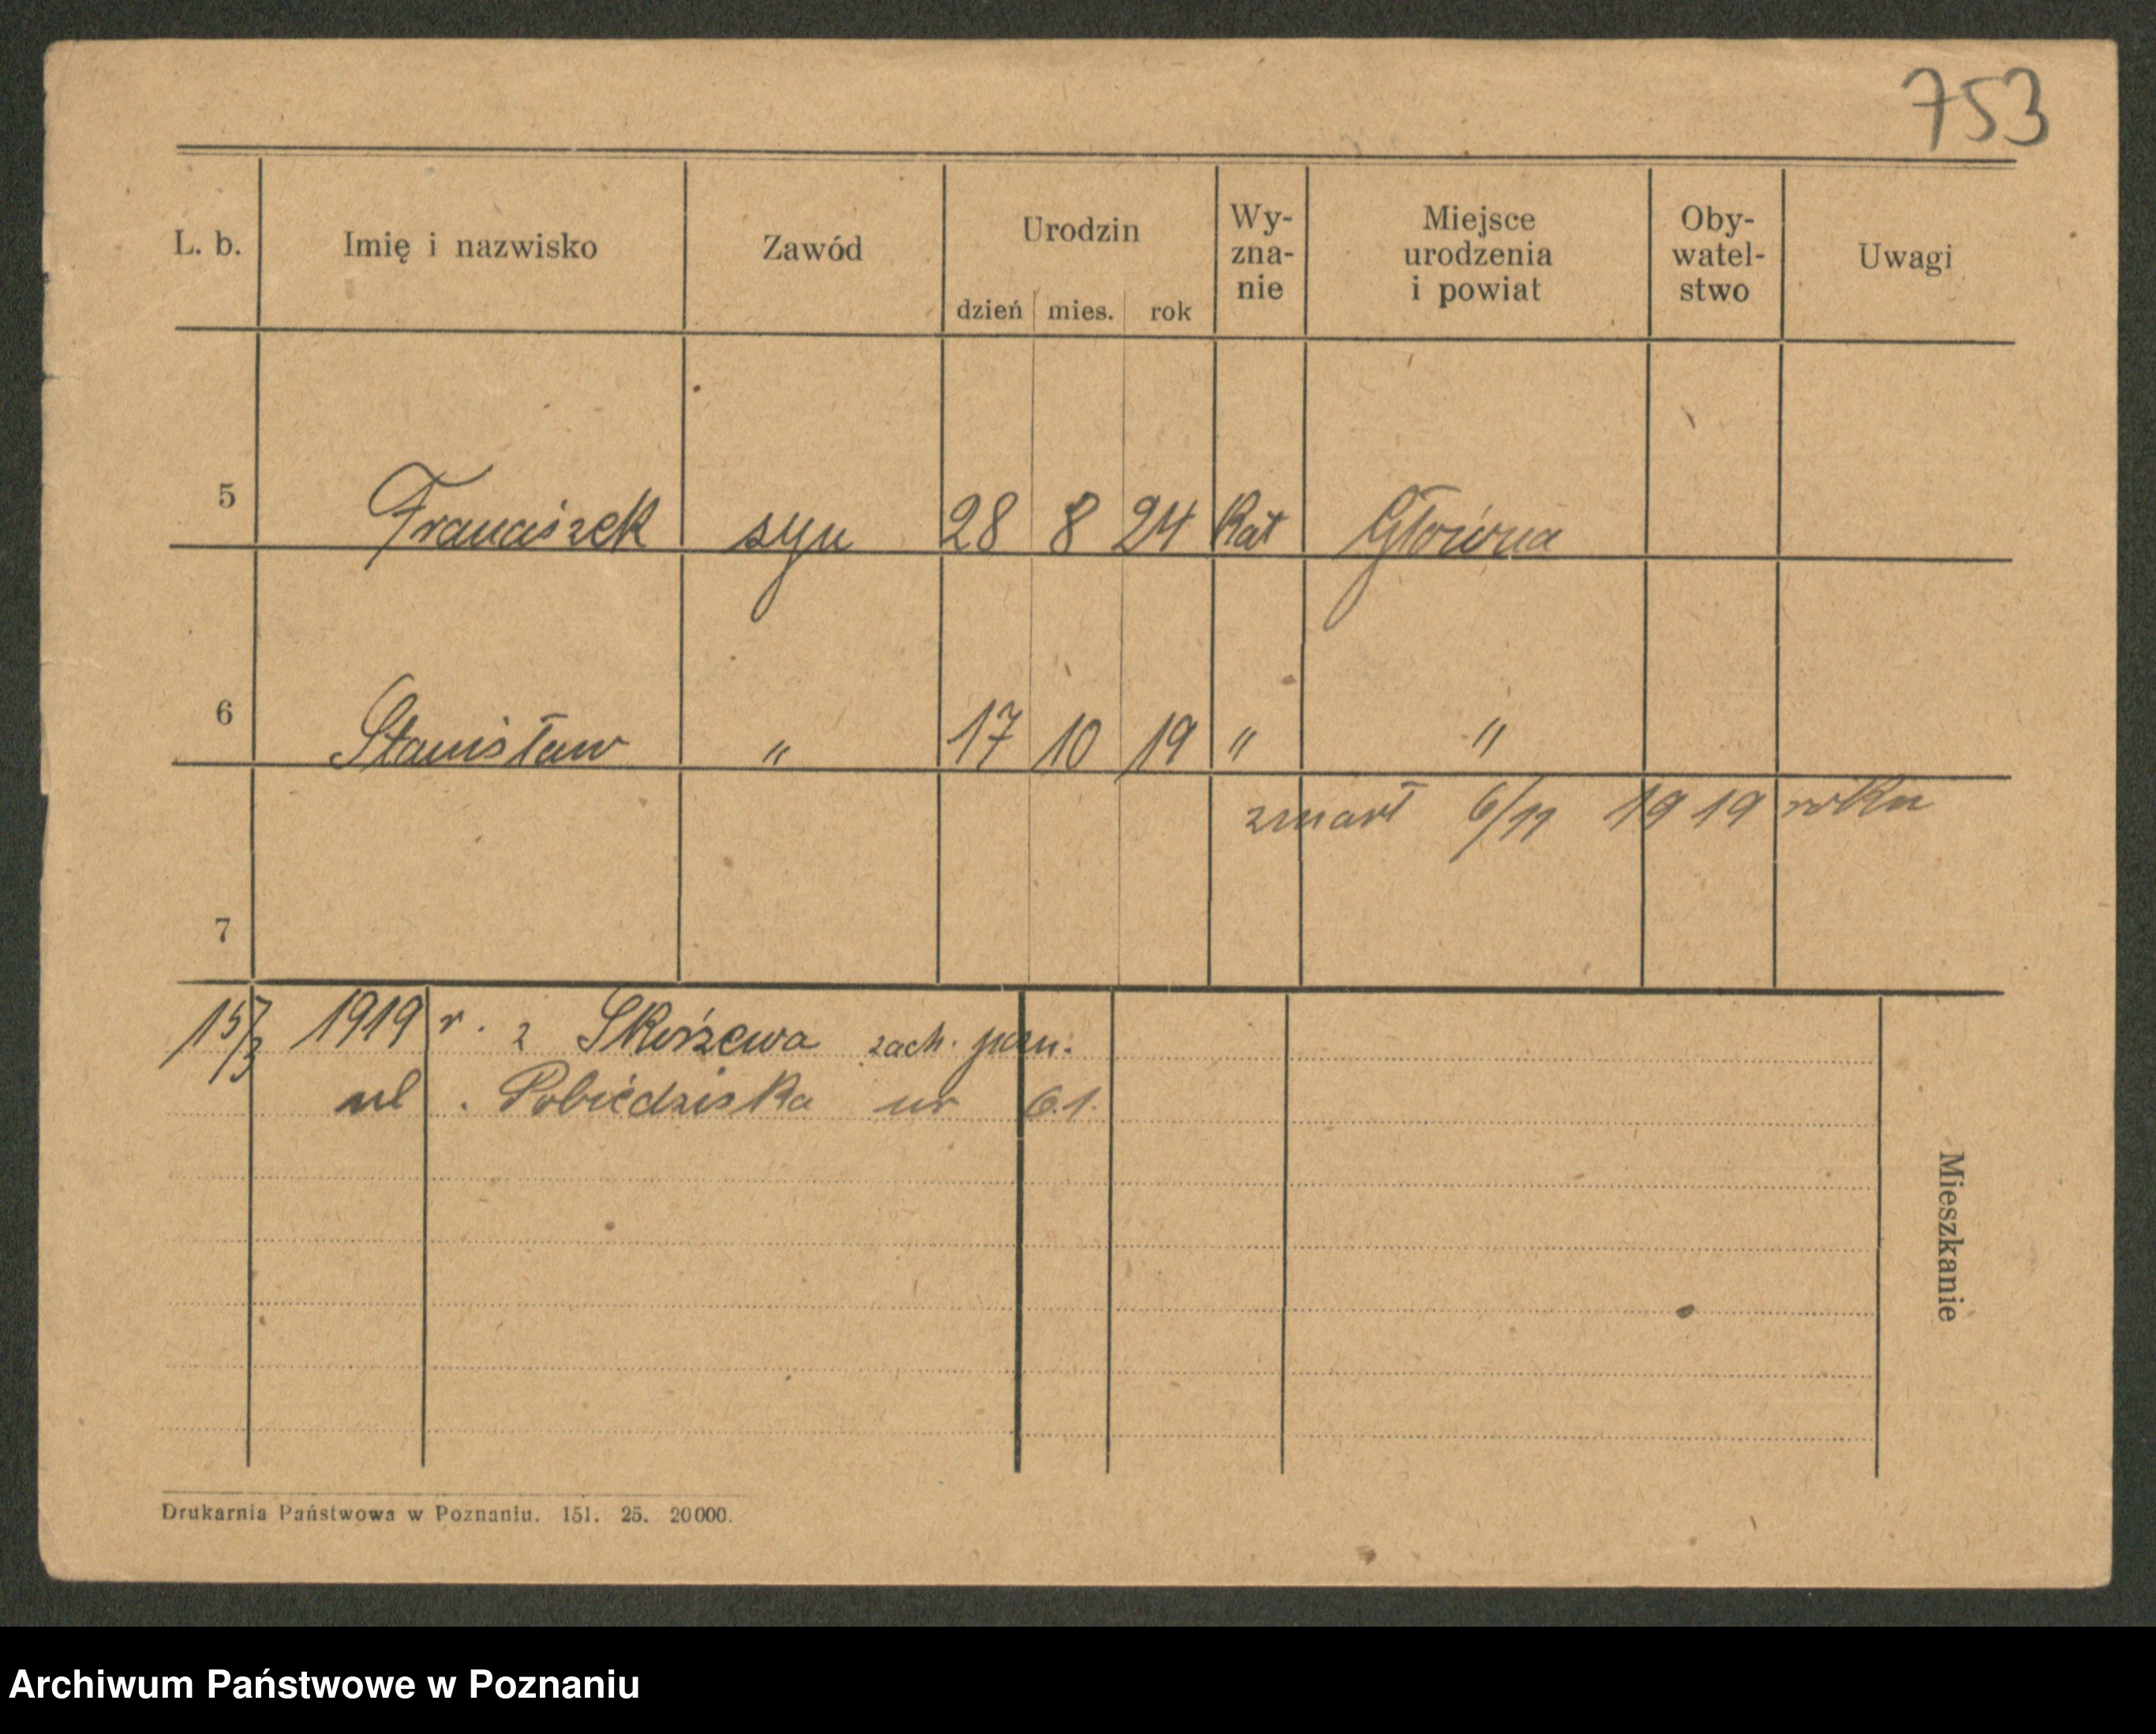 753
L. b. Imię i nazwisko Zawód Urodzin dzień mies. rok Wy-zna-nie Miejsce urodzenia i powiat Oby-watel-stwo Uwagi
5 Franciszek syn 28 8 24 Kat Główna
6 Stanisław " 17 10 19 " "
zmarł 6/11 1919 roku
7
15/3 1919 r. z Skórzewa zach. pozn.
ul. Pobiedziska nr 61.
Mieszkanie
Drukarnia Państwowa w Poznaniu. 151. 25. 20000.
Archiwum Państwowe w Poznaniu